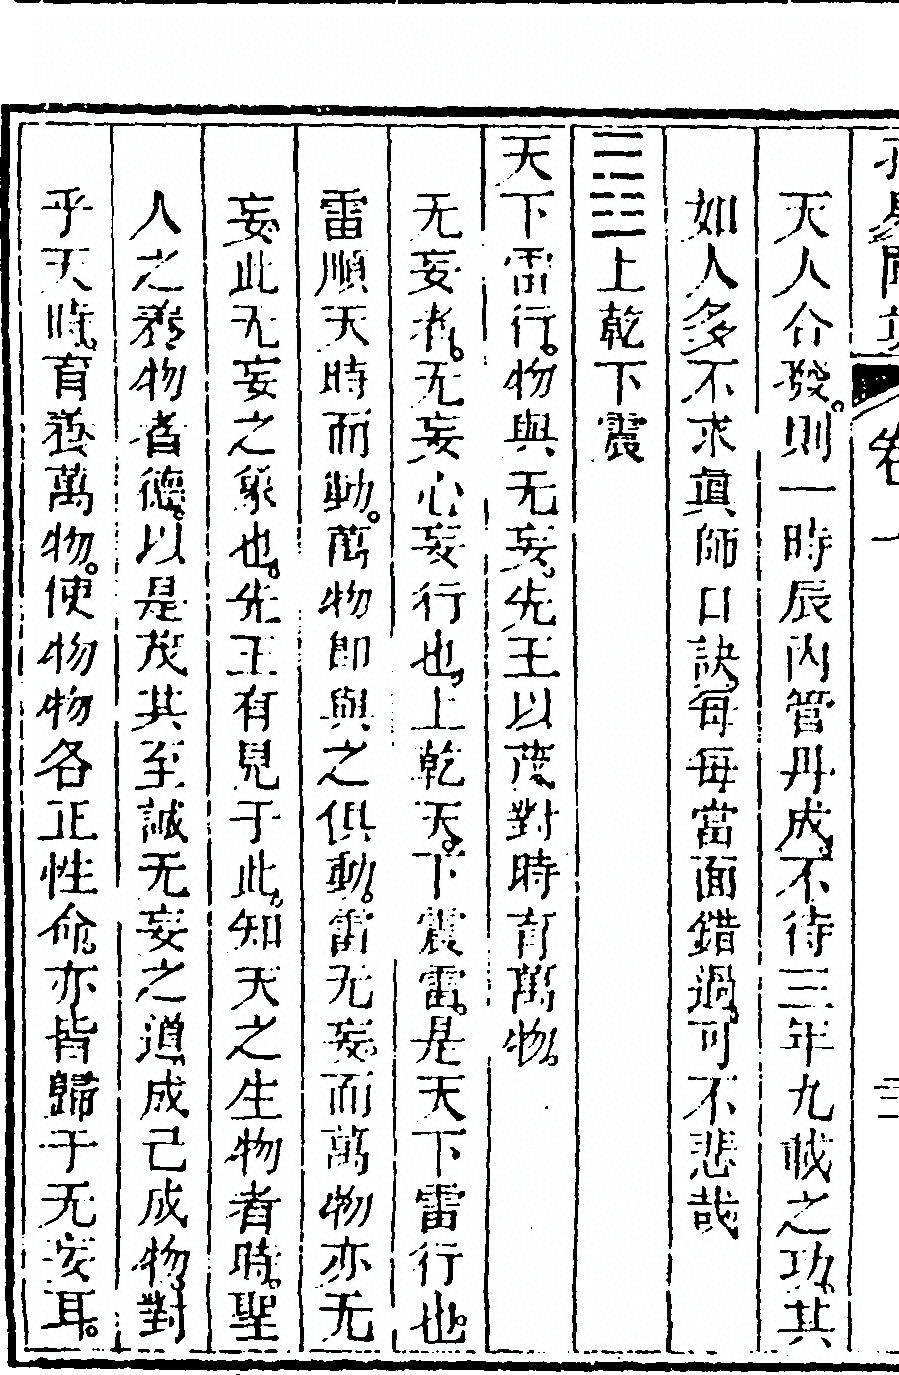 孔易闡真 卷一
天人合發。則一時辰內管丹成。不待三年九載之功。其
如人多不求眞師口訣。每每當面錯過。可不悲哉
䷘上乾下震
天下雷行。物與无妄。先王以茂對時育萬物。
无妄者。无妄心妄行也。上乾天。下震雷。是天下雷行也。
雷順天時而動。萬物卽與之俱動。雷无妄。而萬物亦无
妄。此无妄之象也。先王有見于此。知天之生物者時。聖
人之養物者德。以是茂其至誠无妄之道。成己成物。對
乎天時。育養萬物。使物物各正性命。亦皆歸于无妄耳。